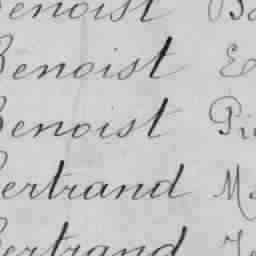 Benoist
Benoist
Benoist Pi
Bertrand M
Bertrand